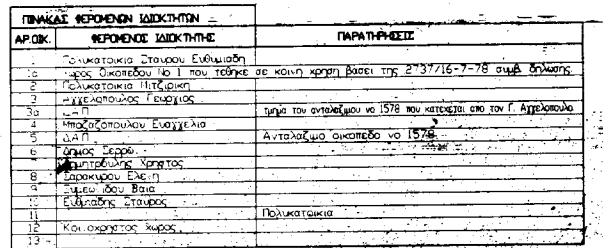 ΠΙΝΑΚΑΣ ΦΕΡΟΜΕΝΩΝ ΙΔΙΟΚΤΗΤΩΝ
ΑΡ.ΟΙΚ. ΦΕΡΟΜΕΝΟΣ ΙΔΙΟΚΤΗΤΗΣ ΠΑΡΑΤΗΡΗΣΕΙΣ
1 Πολυκατοικια Σταυρου Ευθυμιαδη
1α Χωρος Οικοπεδου Νο 1 που τεθηκε σε κοινη χρηση βασει της 2737/16-7-78 συμβ. δηλωσης.
2 Πολυκατοικια Μιτζιρικη
3 Αγγελοπουλος Γεωργιος
3α Δ.Α.Π. τμημα του ανταλαξιμου νο 1578 που κατεχεται απο τον Γ. Αγγελοπουλο
4 Μποζαζοπουλου Ευαγγελια
5 Δ.Α.Π. Ανταλαξιμο οικοπεδο νο 1578
6 Δημος Σερρων
Δημητρουλης Χρηστος
8 Σαρακυρου Ελενη
9 Συμεωνιδου Βαια
10 Ευθυμιαδης Σταυρος
11 Πολυκατοικια
12 Κοινοχρηστος Χωρος
13